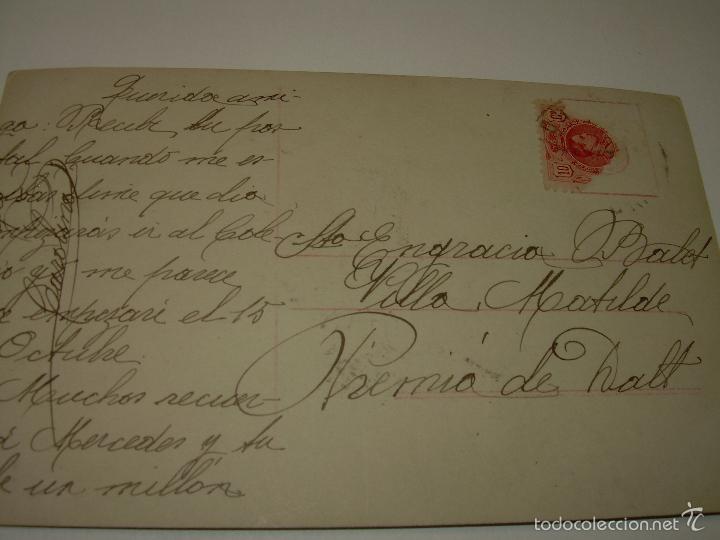 Querida ami-
ga: Recibí tu pos-
tal. Cuando me es-
cribas dime que dia
empezarás ir al Cole-
gio yo me parece
que empezaré el 15
Octubre.
Muchos recuer-
Mercedes y tu
de un millón
Carolina
Sta Engracia Balet
Villa Matilde
Premiá de Dalt
10
10
todocoleccion.net